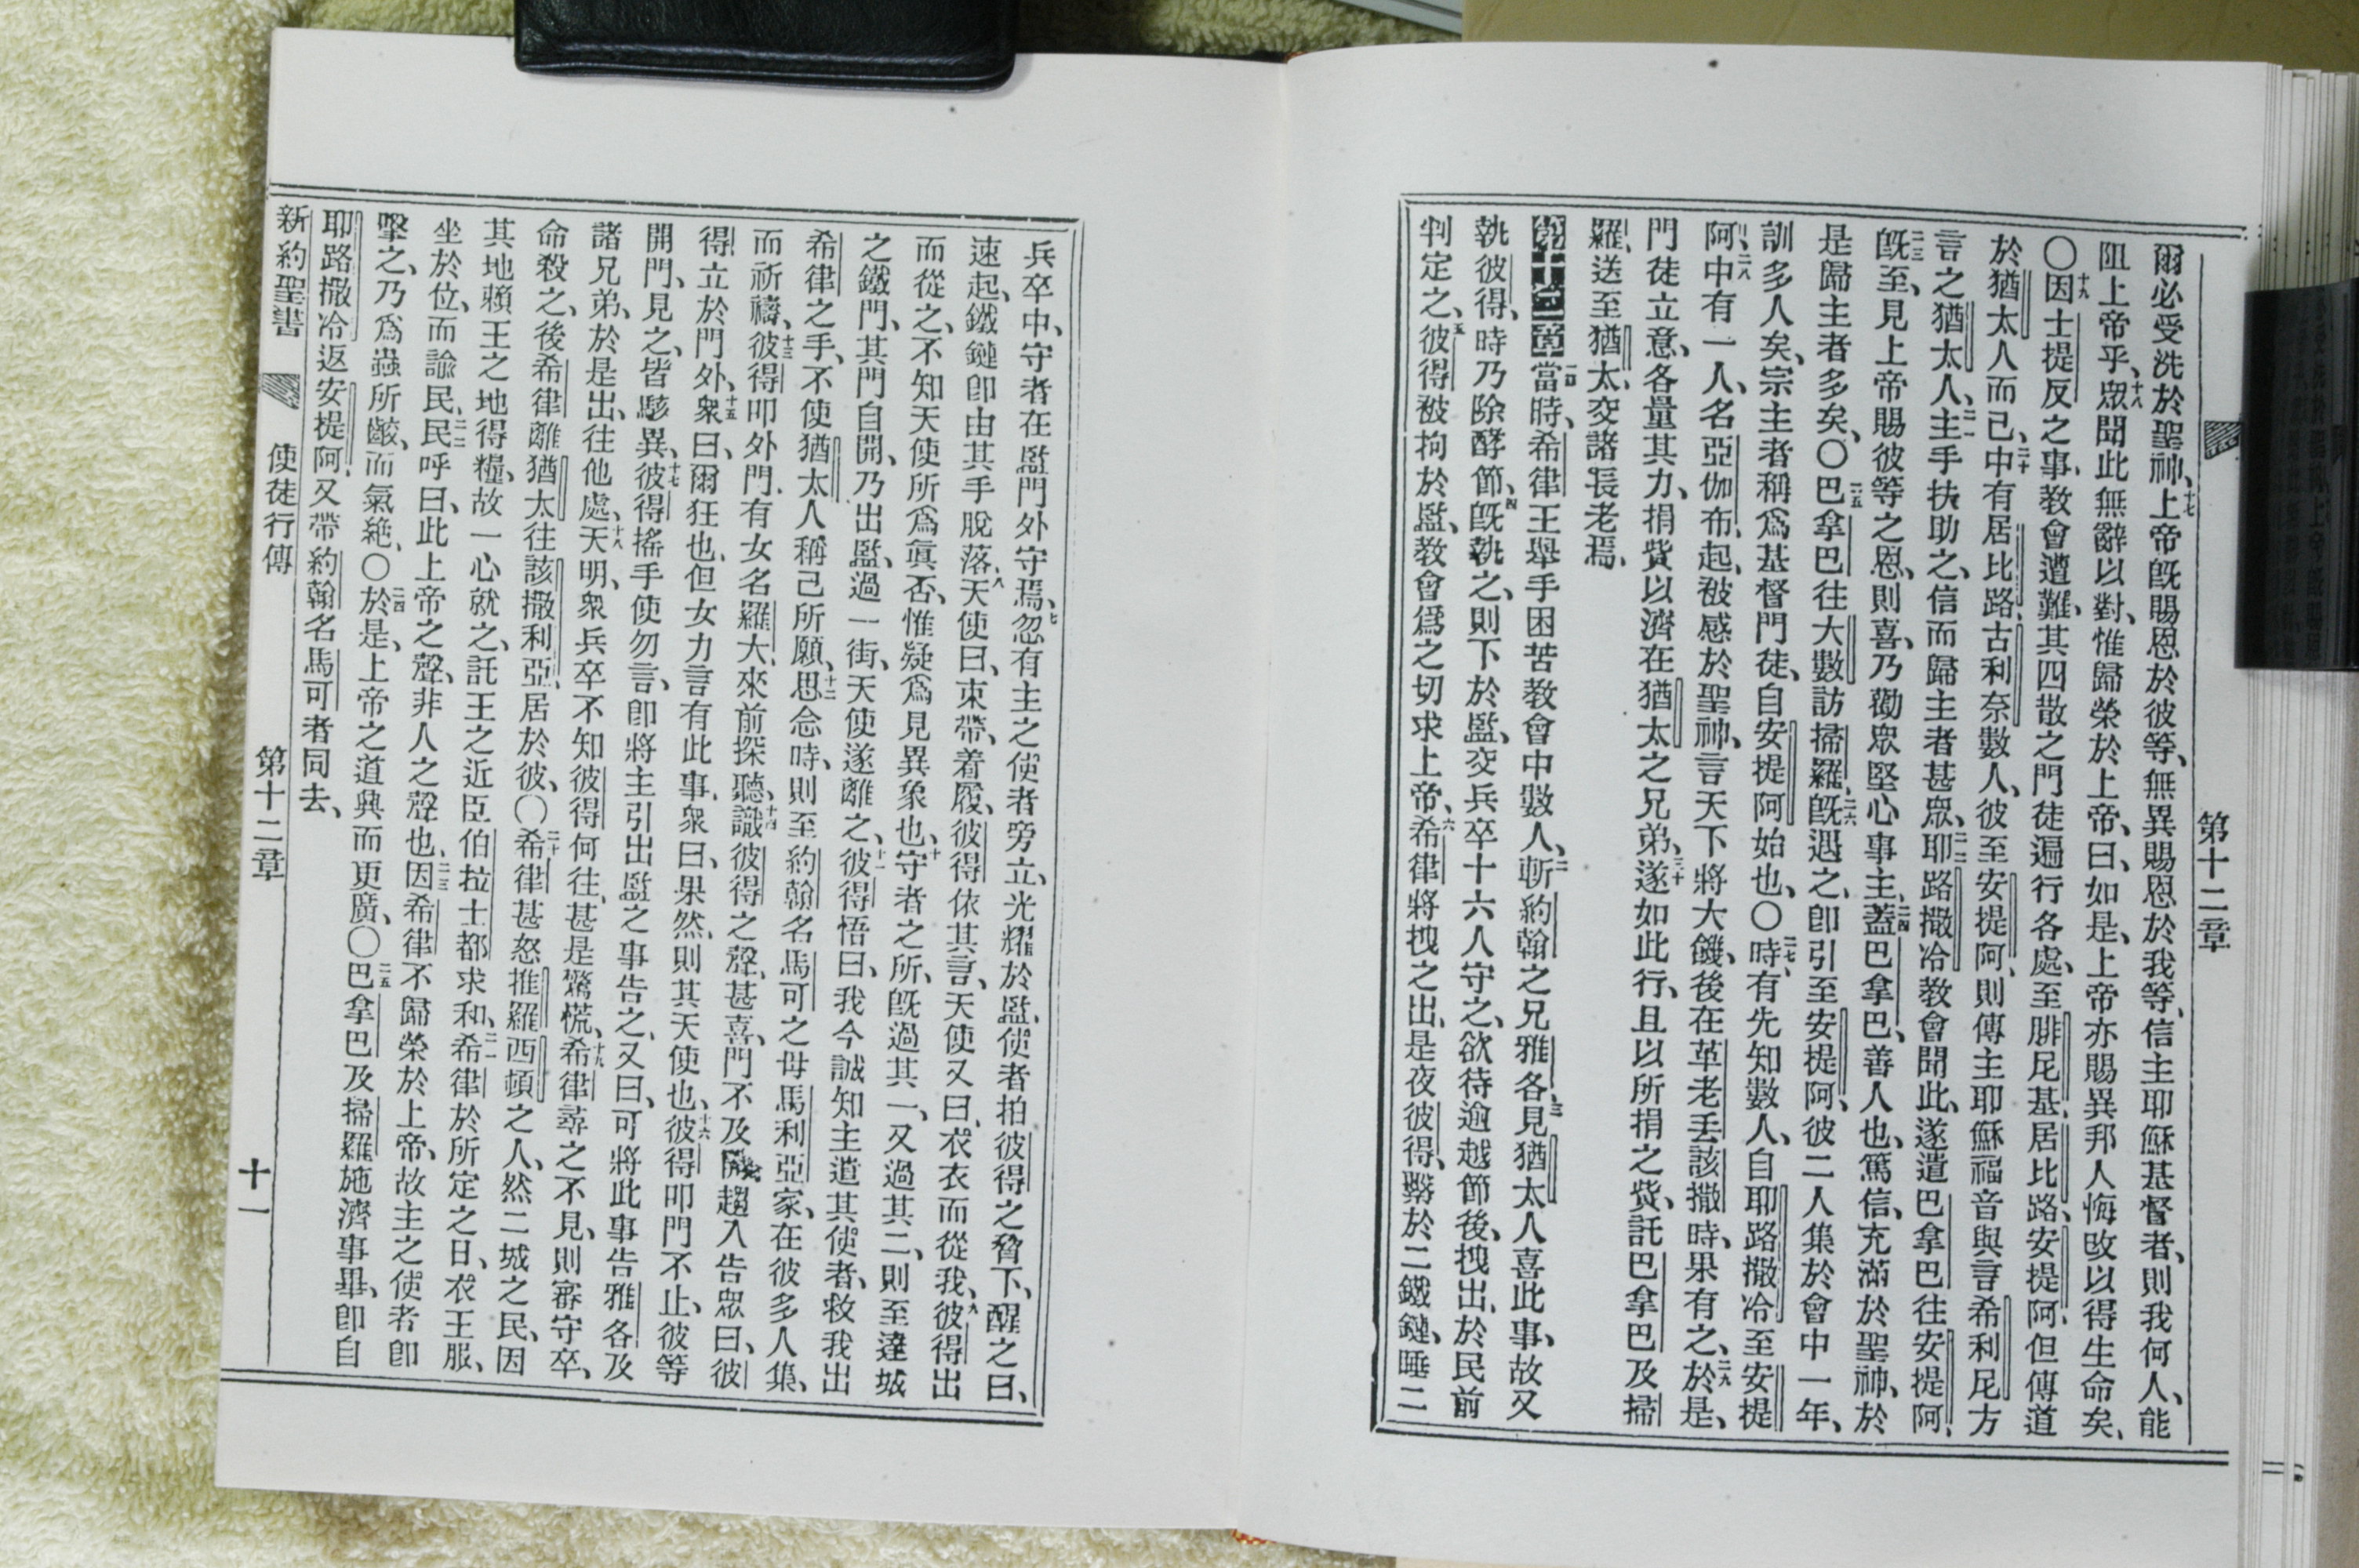 第十二章
爾必受洗於聖神、十七上帝旣賜恩於彼等、無異賜恩於我等、信主耶穌基督者、則我何人、能
阻上帝乎、十八眾聞此無辭以對、惟歸榮於上帝、曰、如是、上帝亦賜異邦人悔改以得生命矣、
〇十九因士提反之事、教會遭難、其四散之門徒遍行各處、至腓尼基、居比路、安提阿、但傳道
於猶太人而已、二十中有居比路、古利奈數人、彼至安提阿、則傳主耶穌福音與言希利尼方
言之猶太人、二一主手扶助之、信而歸主者甚眾、二二耶路撒冷教會聞此、遂遣巴拿巴往安提阿、
二三旣至、見上帝賜彼等之恩、則喜、乃勸眾堅心事主、二四蓋巴拿巴、善人也、篤信、充滿於聖神、於
是歸主者多矣、〇二五巴拿巴往大數訪掃羅、二六旣遇之、卽引至安提阿、彼二人集於會中一年、
訓多人矣、宗主者稱爲基督門徒、自安提阿始也、〇二七時、有先知數人、自耶路撒冷至安提
阿、二八中有一人、名亞伽布、起、被感於聖神、言天下將大饑、後在革老丟該撒時、果有之、二九於是、
門徒立意、各量其力、捐貲以濟在猶太之兄弟、三十遂如此行、且以所捐之貲、託巴拿巴及掃
羅、送至猶太、交諸長老焉、
第十二章一當時、希律王舉手困苦教會中數人、二斬約翰之兄雅各、三見猶太人喜此事、故又
執彼得、時乃除酵節、四旣執之、則下於監、交兵卒十六人守之、欲待逾越節後、拽出、於民前
判定之、五彼得被拘於監、教會爲之切求上帝、六希律將拽之出、是夜彼得、繫於二鐵鏈、睡二
兵卒中、守者在監門外守焉、七忽有主之使者旁立、光耀於監、使者拍彼得之脅下、醒之曰、
速起、鐵鏈卽由其手脫落、八天使曰、束帶、着履、彼得依其言、天使又曰、衣衣而從我、九彼得出
而從之、不知天使所爲眞否、惟疑爲見異象也、十守者之所、旣過其一、又過其二、則至達城
之鐵門、其門自開、乃出監、過一街、天使遂離之、十一彼得悟曰、我今誠知主遣其使者、救我出
希律之手、不使猶太人稱己所願、十二思念時、則至約翰名馬可之母馬利亞家、在彼多人集、
而祈禱、十三彼得叩外門、有女名羅大、來前探聽、十四識彼得之聲、甚喜、門不及開、趨入告眾曰、彼
得立於門外、十五衆曰、爾狂也、但女力言有此事、衆曰、果然、則其天使也、十六彼得叩門不止、彼等
開門、見之、皆駭異、十七彼得搖手使勿言、卽將主引出監之事告之、又曰、可將此事告雅各及
諸兄弟、於是出、往他處、十八天明、衆兵卒不知彼得何往、甚是驚慌、十九希律尋之不見、則審守卒、
命殺之、後希律離猶太往該撒利亞、居於彼、〇二十希律甚怒推羅西頓之人、然二城之民、因
其地賴王之地得糧、故一心就之、託王之近臣伯拉士都求和、二一希律於所定之日、衣王服、
坐於位、而諭民、二二民呼曰、此上帝之聲、非人之聲也、二三因希律不歸榮於上帝、故主之使者卽
擊之、乃爲蟲所齩、而氣絶、〇二四於是、上帝之道興而更廣、〇二五巴拿巴及掃羅施濟事畢、卽自
耶路撒冷返安提阿、又帶約翰名馬可者同去、
新約聖書　使徒行傳　第十二章　十一